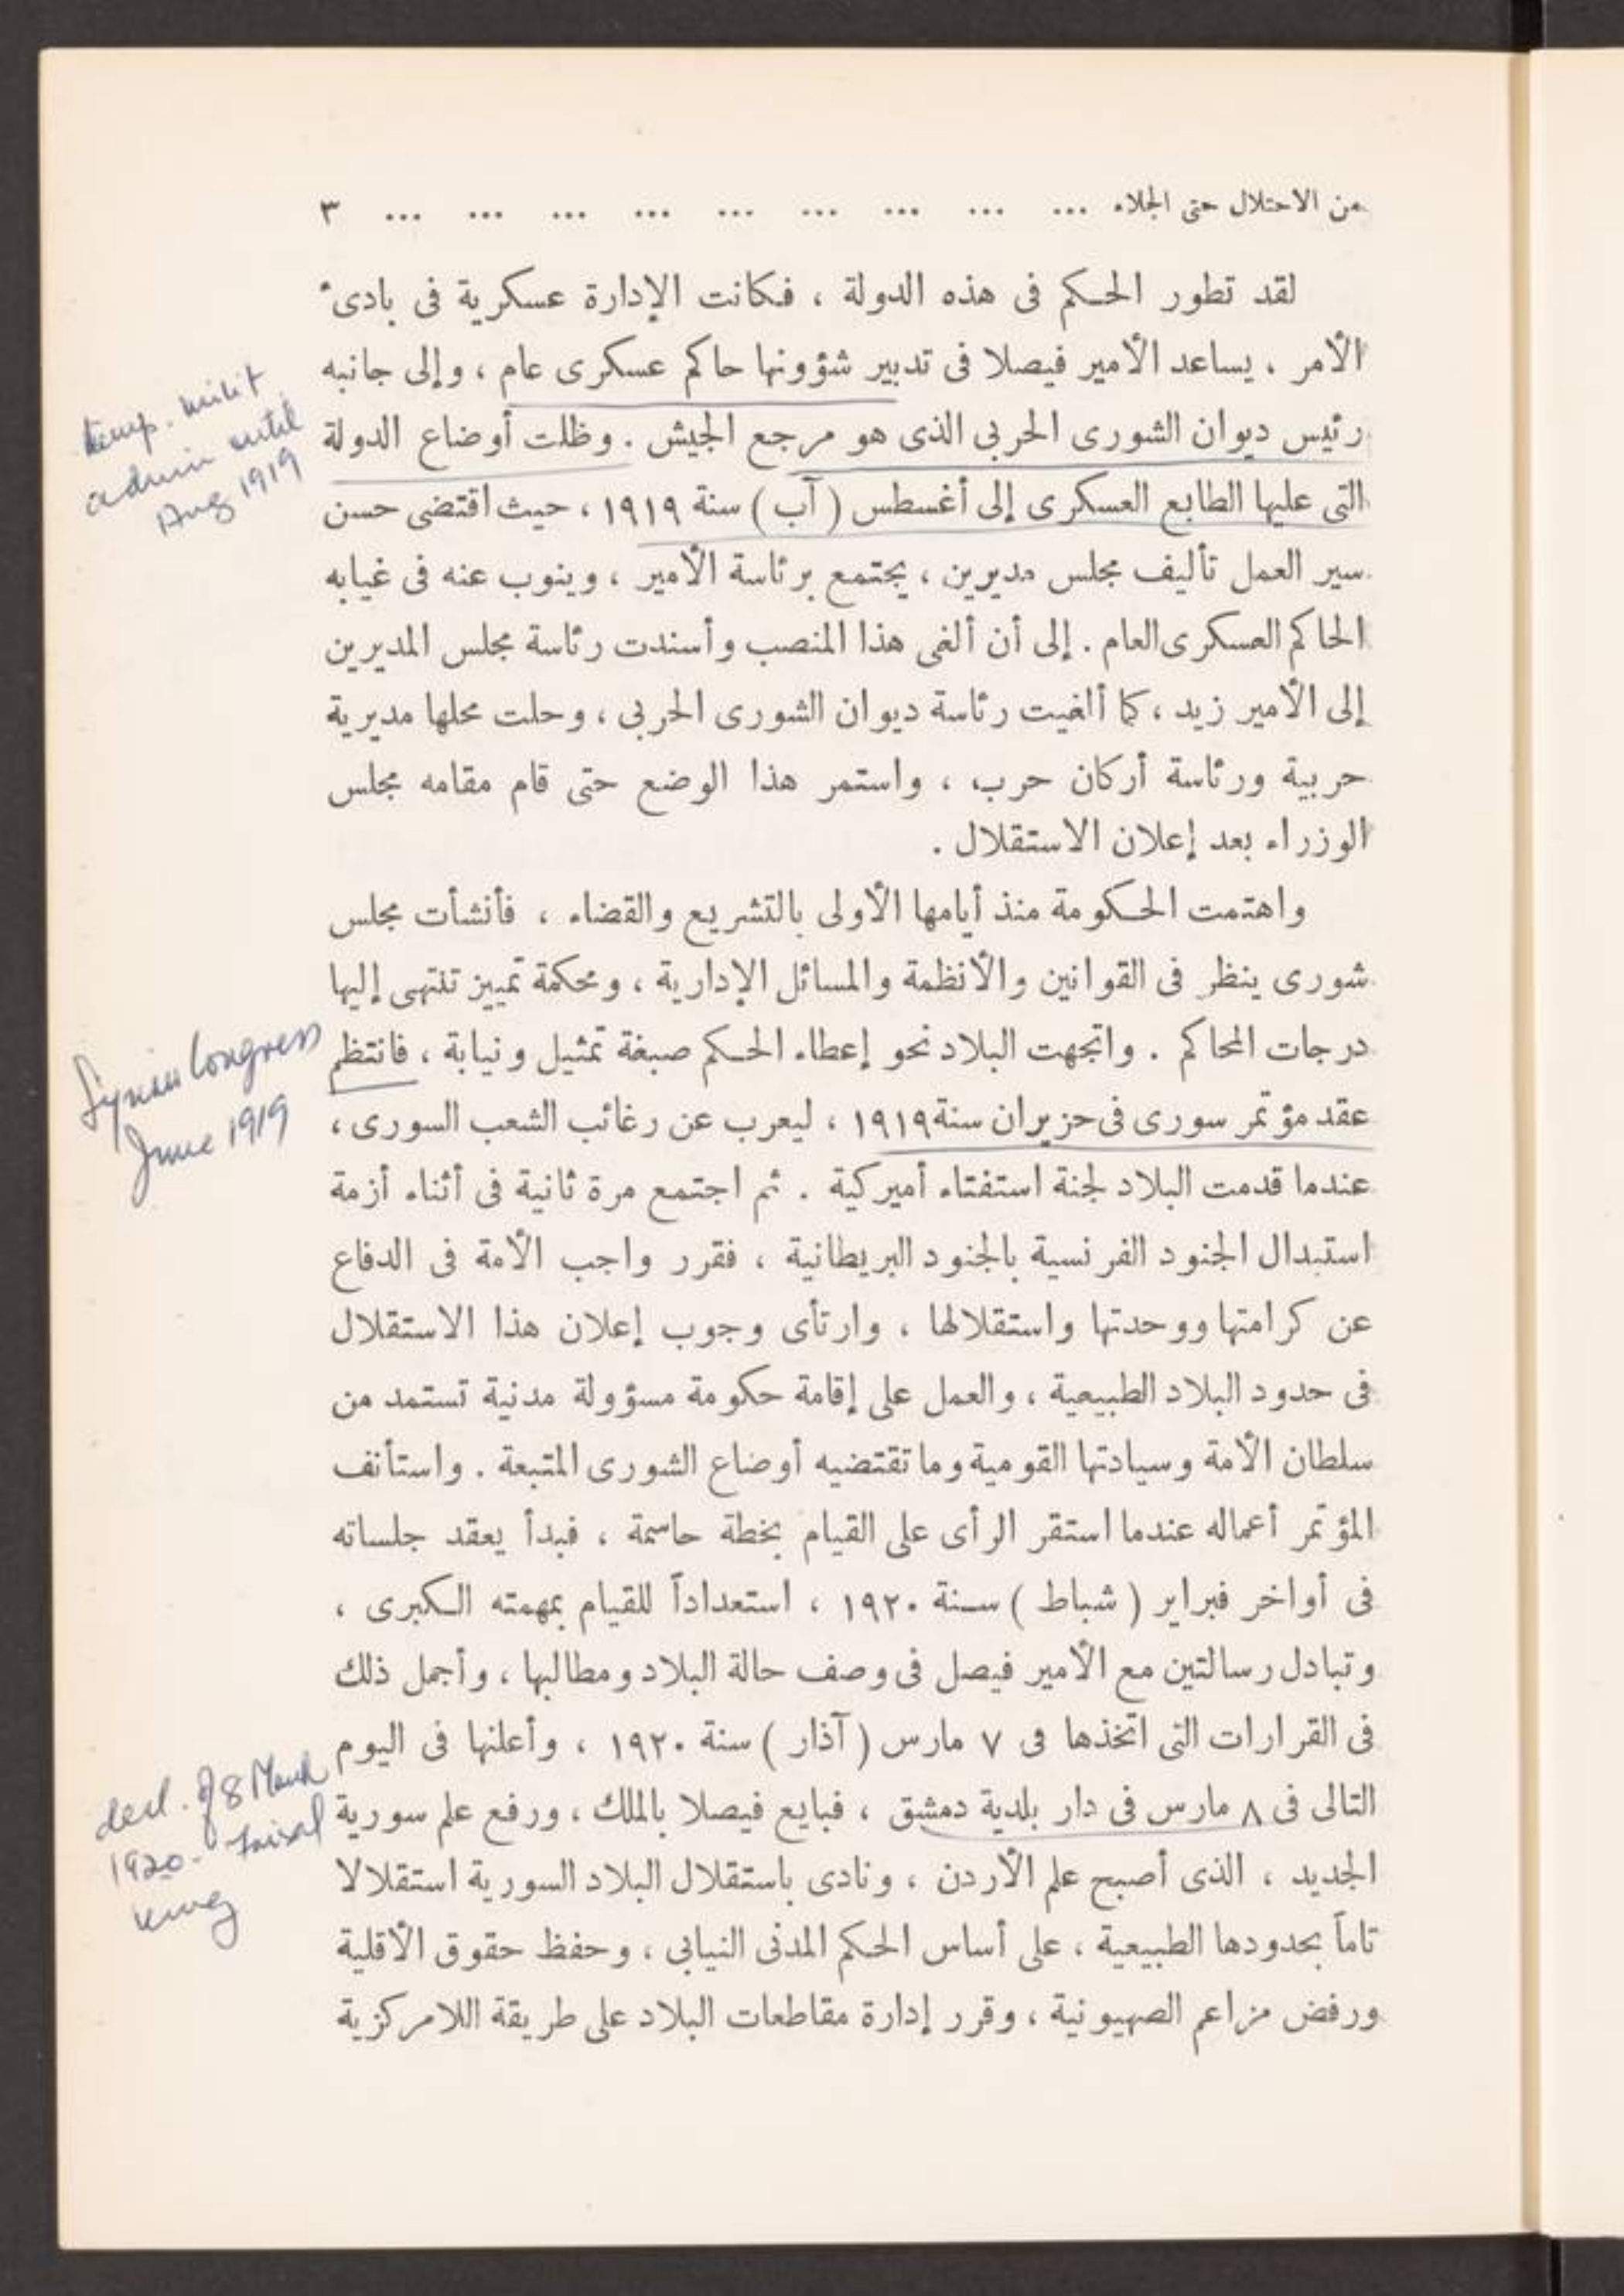 من الاحتلال حتى الجلاء ... ... ... ... ... ... ... ... ... ٣
لقد تطور الحكم فى هذه الدولة ، فكانت الإدارة عسكرية فى بادىء
الأمر ، يساعد الأمير فيصلا فى تدبير شؤونها حاكم عسكرى عام ، وإلى جانبه
رئيس ديوان الشورى الحربى الذى هو مرجع الجيش . وظلت أوضاع الدولة
التى عليها الطابع العسكرى إلى أغسطس ( آب ) سنة ١٩١٩ ، حيث اقتضى حسن
سير العمل تأليف مجلس مديرين ، يجتمع برئاسة الأمير ، وينوب عنه فى غيابه
الحاكم العسكرى العام . إلى أن ألغى هذا المنصب وأسندت رئاسة مجلس المديرين
إلى الأمير زيد ، كما ألغيت رئاسة ديوان الشورى الحربى ، وحلت محلها مديرية
حربية ورئاسة أركان حرب ، واستمر هذا الوضع حتى قام مقامه مجلس
الوزراء بعد إعلان الاستقلال .
واهتمت الحكومة منذ أيامها الأولى بالتشريع والقضاء ، فأنشأت مجلس
شورى ينظر فى القوانين والأنظمة والمسائل الإدارية ، ومحكمة تمييز تنتهى إليها
درجات المحاكم . واتجهت البلاد نحو إعطاء الحكم صبغة تمثيل ونيابة ، فانتظم
عقد مؤتمر سورى فى حزيران سنة ١٩١٩ ، ليعرب عن رغائب الشعب السورى ،
عندما قدمت البلاد لجنة استفتاء أميركية . ثم اجتمع مرة ثانية فى أثناء أزمة
استبدال الجنود الفرنسية بالجنود البريطانية ، فقرر واجب الأمة فى الدفاع
عن كرامتها ووحدتها واستقلالها ، وارتأى وجوب إعلان هذا الاستقلال
فى حدود البلاد الطبيعية ، والعمل على إقامة حكومة مسؤولة مدنية تستمد من
سلطان الأمة وسيادتها القومية وما تقتضيه أوضاع الشورى المتبعة . واستأنف
المؤتمر أعماله عندما استقر الرأى على القيام بخطة حاسمة ، فبدأ يعقد جلساته
فى أواخر فبراير ( شباط ) سنة ١٩٢٠ ، استعداداً للقيام بمهمته الكبرى ،
وتبادل رسالتين مع الأمير فيصل فى وصف حالة البلاد ومطالبها ، وأجمل ذلك
فى القرارات التى اتخذها فى ٧ مارس ( آذار ) سنة ١٩٢٠ ، وأعلنها فى اليوم
التالى فى ٨ مارس فى دار بلدية دمشق ، فبايع فيصلا بالملك ، ورفع علم سورية
الجديد ، الذى أصبح علم الأردن ، ونادى باستقلال البلاد السورية استقلالا
تاماً بحدودها الطبيعية ، على أساس الحكم المدنى النيابى ، وحفظ حقوق الأقلية
ورفض مزاعم الصهيونية ، وقرر إدارة مقاطعات البلاد على طريقة اللامركزية
temp. milit
admin until
Aug 1919
Syrian Congress
June 1919
decl. of 8 March
1920 - Faisal
King